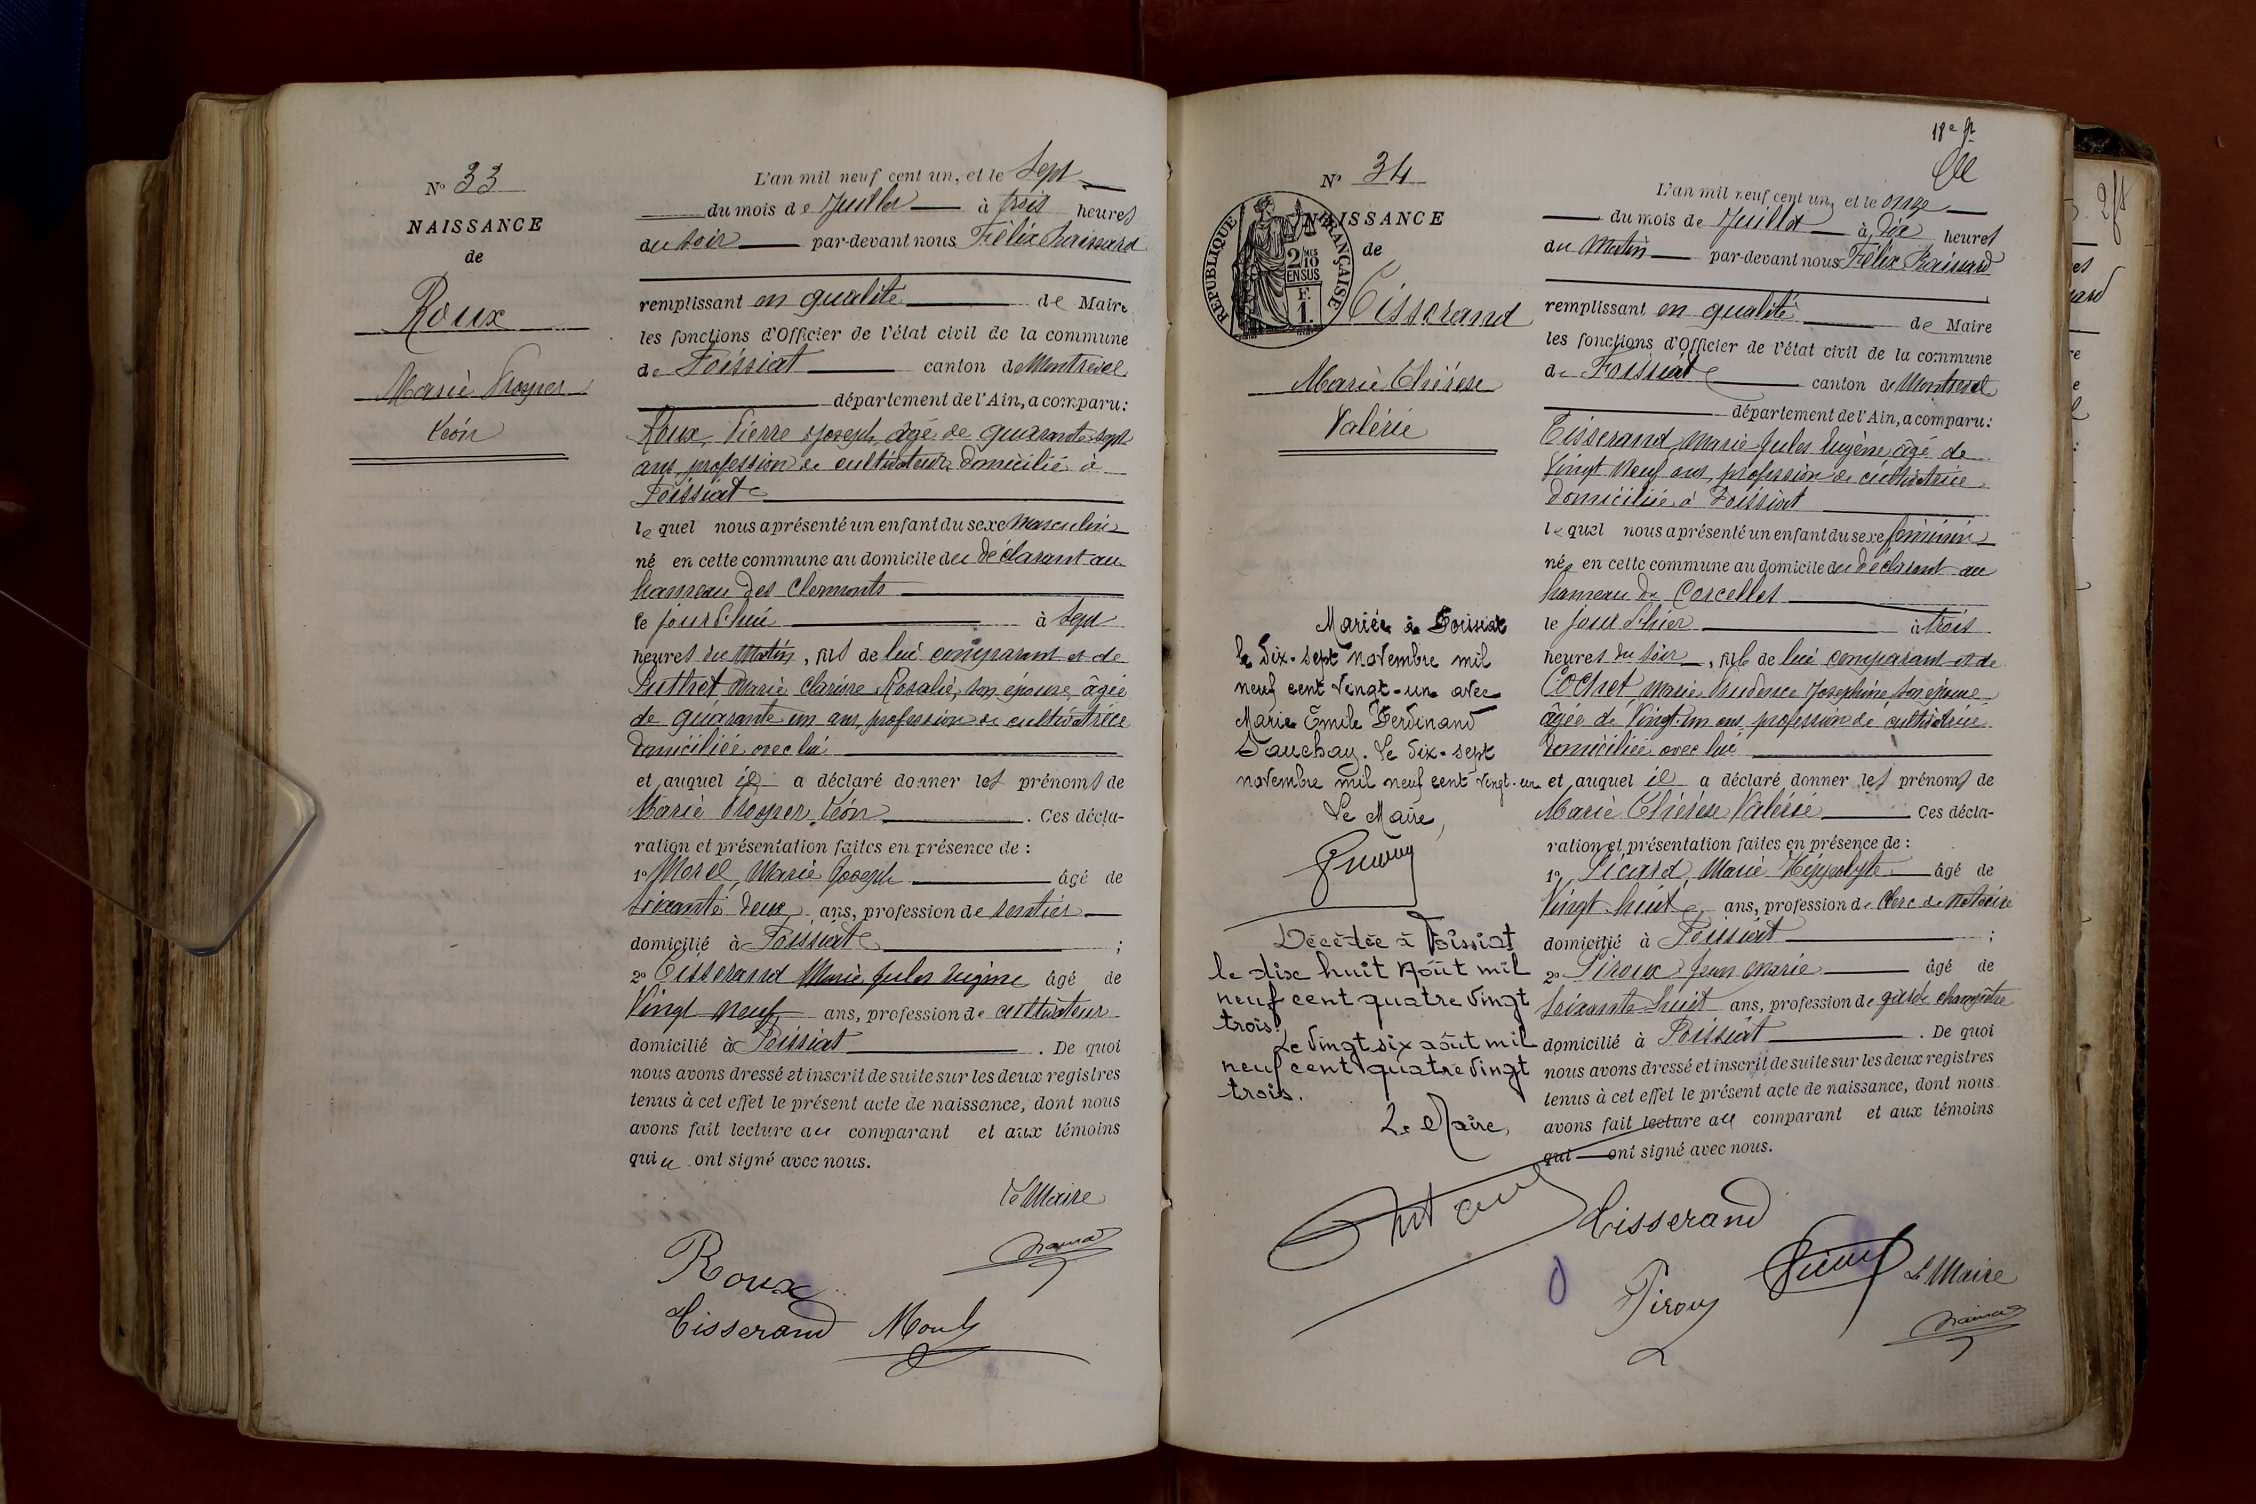 N° 33
NAISSANCE
de
Roux
Marie Prosper
Léon
L'an mil neuf cent un, et le Sept
du mois de Juillet à trois heures
du soir par-devant nous Félix
remplissant en qualité de Maire
les fonctions d'Officier de l'état civil de la commune
de Foissiat canton de Montrevel
département de l'Ain, a comparu:
Roux, Pierre Joseph, âgé de quarante sept
ans, profession de cultivateur, domicilié à
Foissiat
lequel nous a présenté un enfant du sexe masculin
né en cette commune au domicile du déclarant au
hameau des Clermonts
le jourd'hui à sept
heures du Matin, fils de lui comparant et de
Puthet Marie Clarisse Rosalie, son épouse, âgée
de quarante un ans, profession de cultivatrice
domiciliée avec lui
et auquel il a déclaré donner les prénoms de
Marie Prosper Léon . Ces décla-
ration et présentation faites en présence de :
1° Morel, Marie Joseph âgé de
soixante deux ans, profession de rentier
domicilié à Foissiat ;
2° Tisserand Marie Jules Eugène âgé de
Vingt neuf ans, profession de cultivateur
domicilié à Foissiat . De quoi
nous avons dressé et inscrit de suite sur les deux registres
tenus à cet effet le présent acte de naissance, dont nous
avons fait lecture au comparant et aux témoins
qui ont signé avec nous.
Le Maire
Roux
Tisserand
18e
N° 34
NAISSANCE
de
RÉPUBLIQUE FRANÇAISE
2/10 EN SUS
F. 1.
Tisserand
Marie Thérèse
Valérie
Mariée à Foissiat
le dix-sept novembre mil
neuf cent vingt-un avec
Marie Emile Ferdinand
Dauchay. Le dix-sept
novembre mil neuf cent vingt-un
Le Maire,
Décédée à Foissiat
le dix huit Août mil
neuf cent quatre vingt
trois.
Le vingt six août mil
neuf cent quatre vingt
trois.
Le Maire,
L'an mil neuf cent un, et le onze
du mois de Juillet à dix heures
du Matin par-devant nous Félix
remplissant en qualité de Maire
les fonctions d'Officier de l'état civil de la commune
de Foissiat canton de Montrevel
département de l'Ain, a comparu:
Tisserand, Marie Jules Eugène âgé de
Vingt neuf ans, profession de cultivatrice
domiciliée à Foissiat
lequel nous a présenté un enfant du sexe féminin
née en cette commune au domicile du déclarant au
hameau de Corcelles
le jour d'hier à trois
heures du soir, fille de lui comparant et de
Cochet Marie Prudence Joséphine son épouse
âgée de Vingt-un ans, profession de cultivatrice
domiciliée avec lui
et auquel il a déclaré donner les prénoms de
Marie Thérèse Valérie Ces décla-
ration et présentation faites en présence de :
1° Picard, Marie Hippolyte âgé de
Vingt huit ans, profession de Clerc de Notaire
domicilié à Foissiat ;
2° Piroux Jean Marie âgé de
soixante huit ans, profession de garde champêtre
domicilié à Foissiat . De quoi
nous avons dressé et inscrit de suite sur les deux registres
tenus à cet effet le présent acte de naissance, dont nous
avons fait lecture au comparant et aux témoins
qui ont signé avec nous.
Tisserand
Piroux
Le Maire